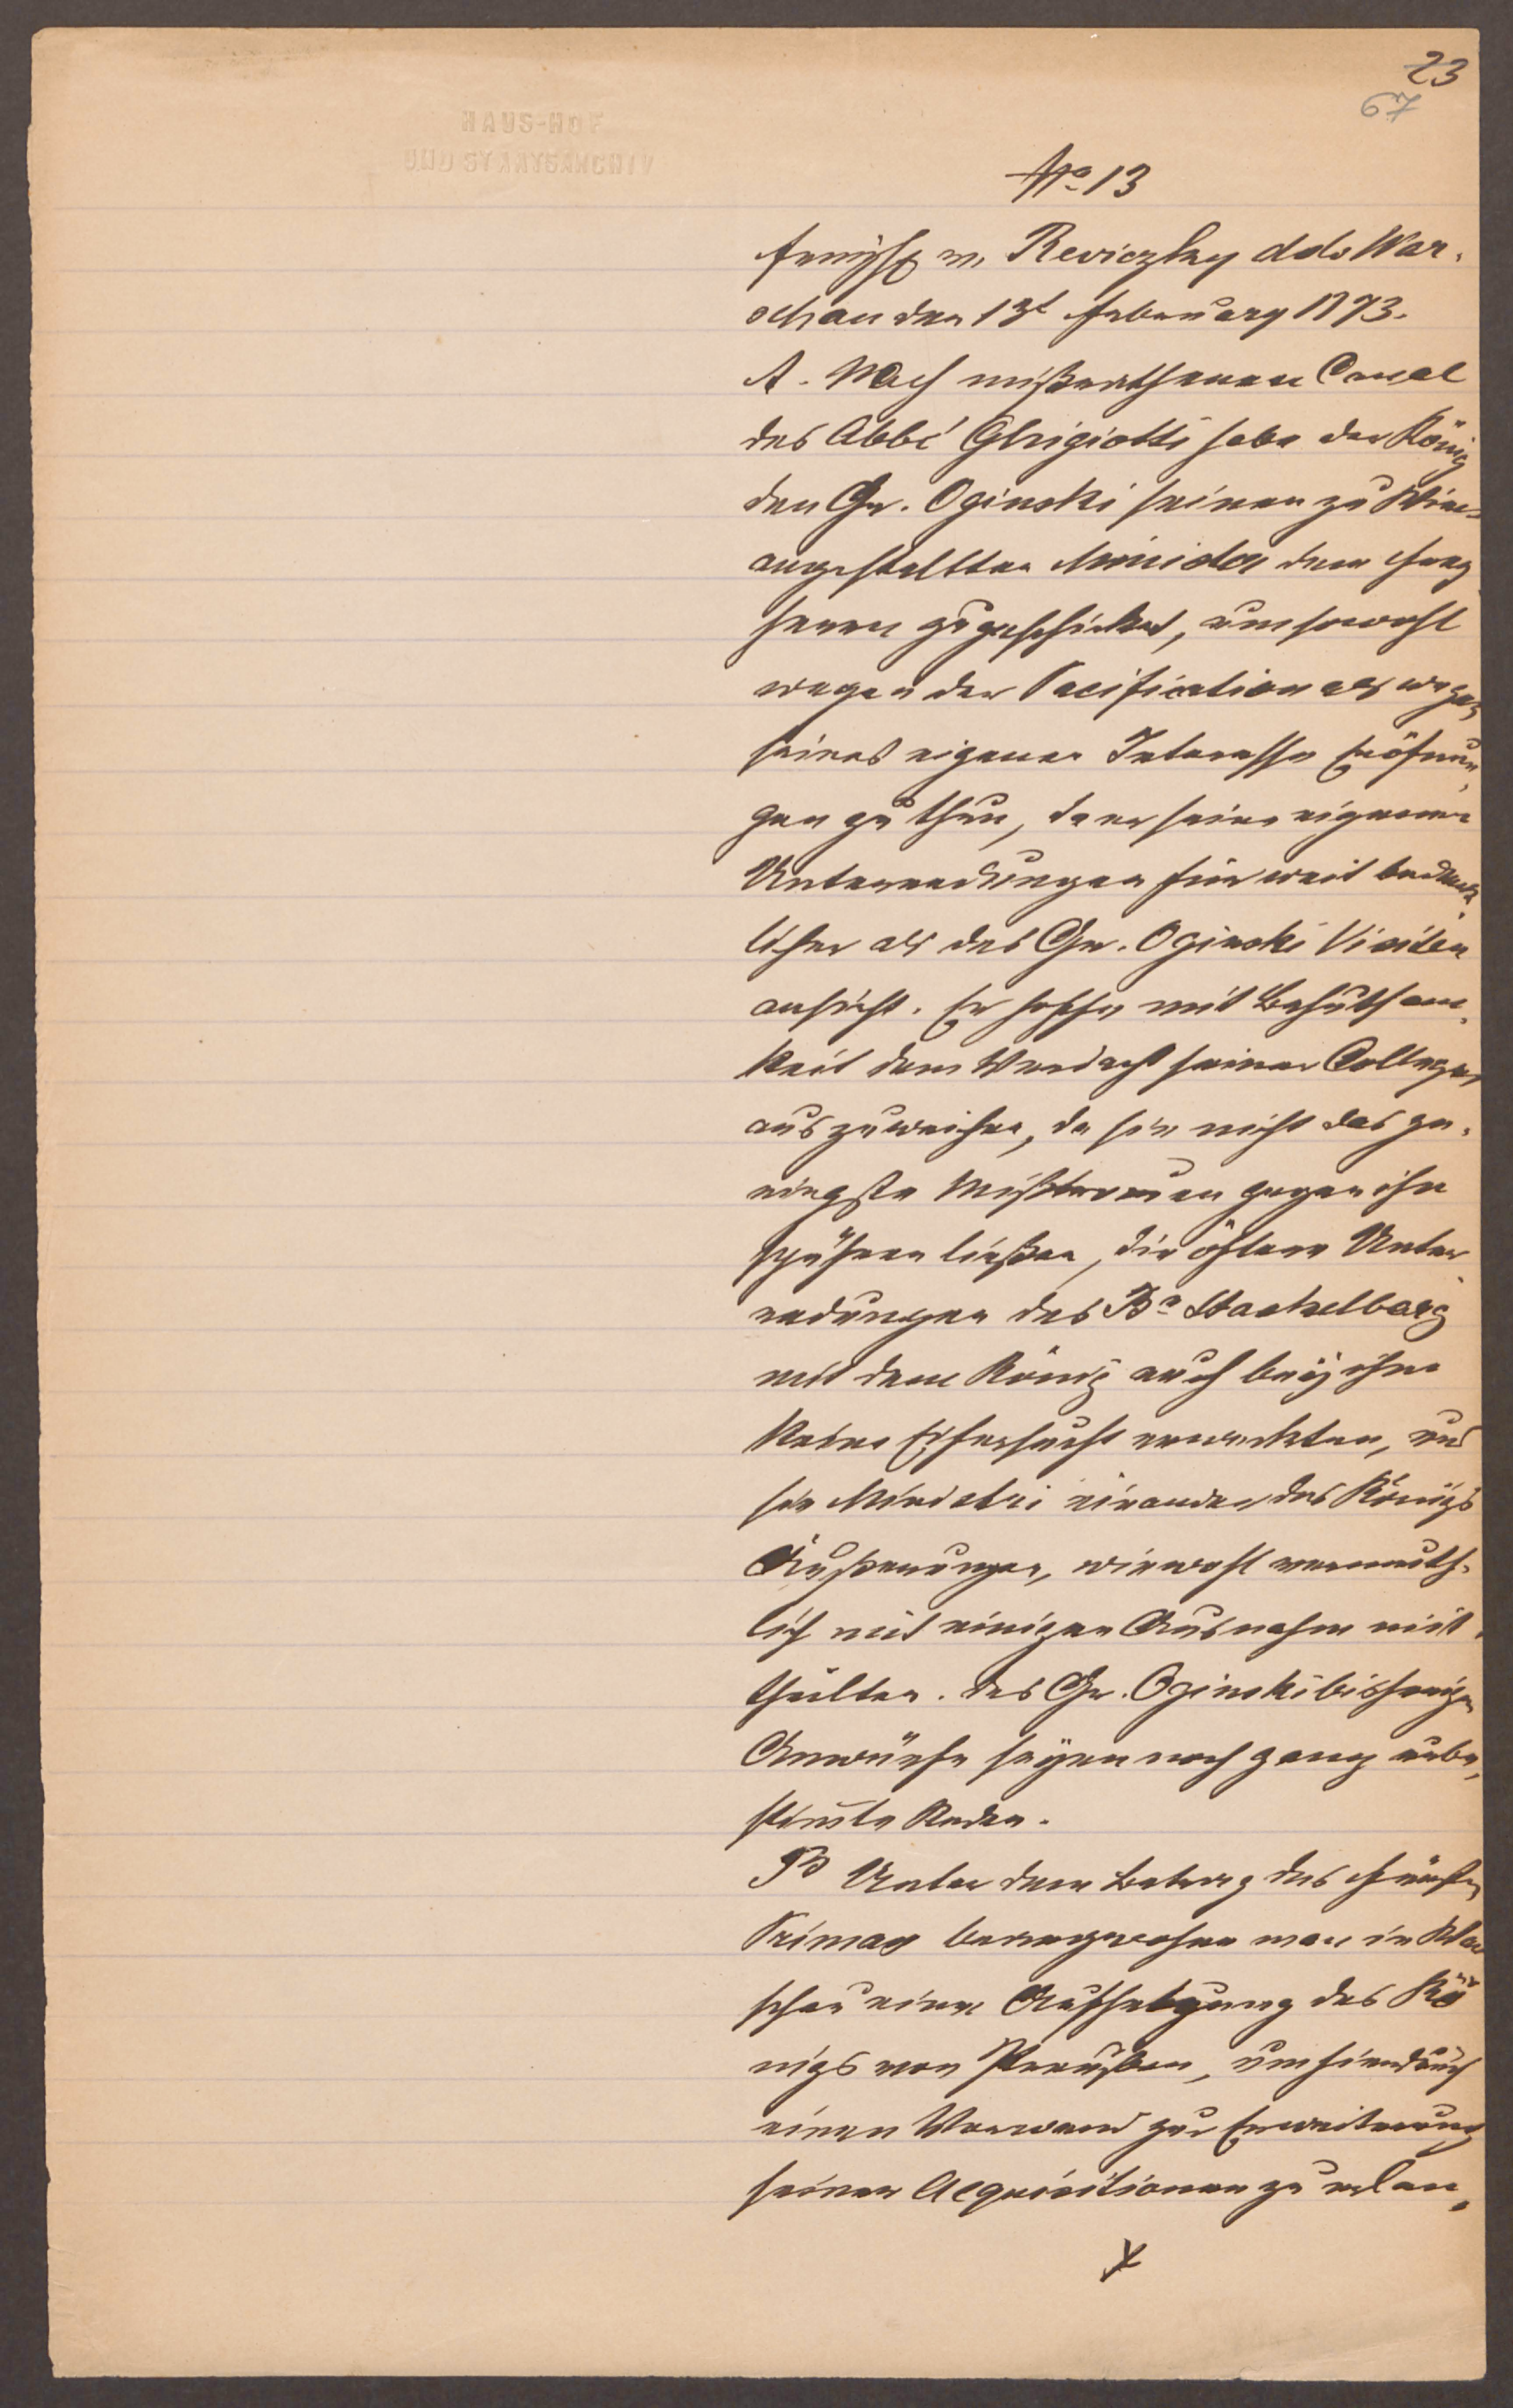 23
67
HAUS-HOF
UND STAATSARCHIV
No 13
v. Reviczky ddo War,
schau den 13t February 1773.
A. Nach Canal
des Abbé Ghigiotti habe der König
den Gr. Oginski seinen zu Wien
angestellten Minister dem
herrn zugeschicket, um sowohl
wegen der Pacification als wegen
seines eigenen Interesse Eröfnun,
gen zu thun, da er seine eigenen
Unterredungen für weit bedenk,
licher als des Gr. Oginski Visiten
ansieht. Er hoffe mit Behutsam,
keit dem Verdacht seiner Collegen
auszuweichen, da sie nicht das ge,
ringste Mißtrauen gegen ihn
spühren ließen, die öftere Unter
redungen des Bn Stackelberg
mit dem König auch bey ihm
keine Eifersucht erweckten, und
sie Ministri einander des Königs
Äußerungen, wiewohl vermuth,
lich mit einigen Ausnahm mit,
theilten. des Gr. Oginski bisherige
Anwürfe seyen noch ganz unbe,
stimte Reden.
B Unter dem Betrag des Fürsten
Primas beargwohne man in War
schau eine Aufhetzung des Kö
nigs von Preußen, um hierdurch
einen Vorwand zur Erweiterung
seiner Acquisitionen zu erlan,